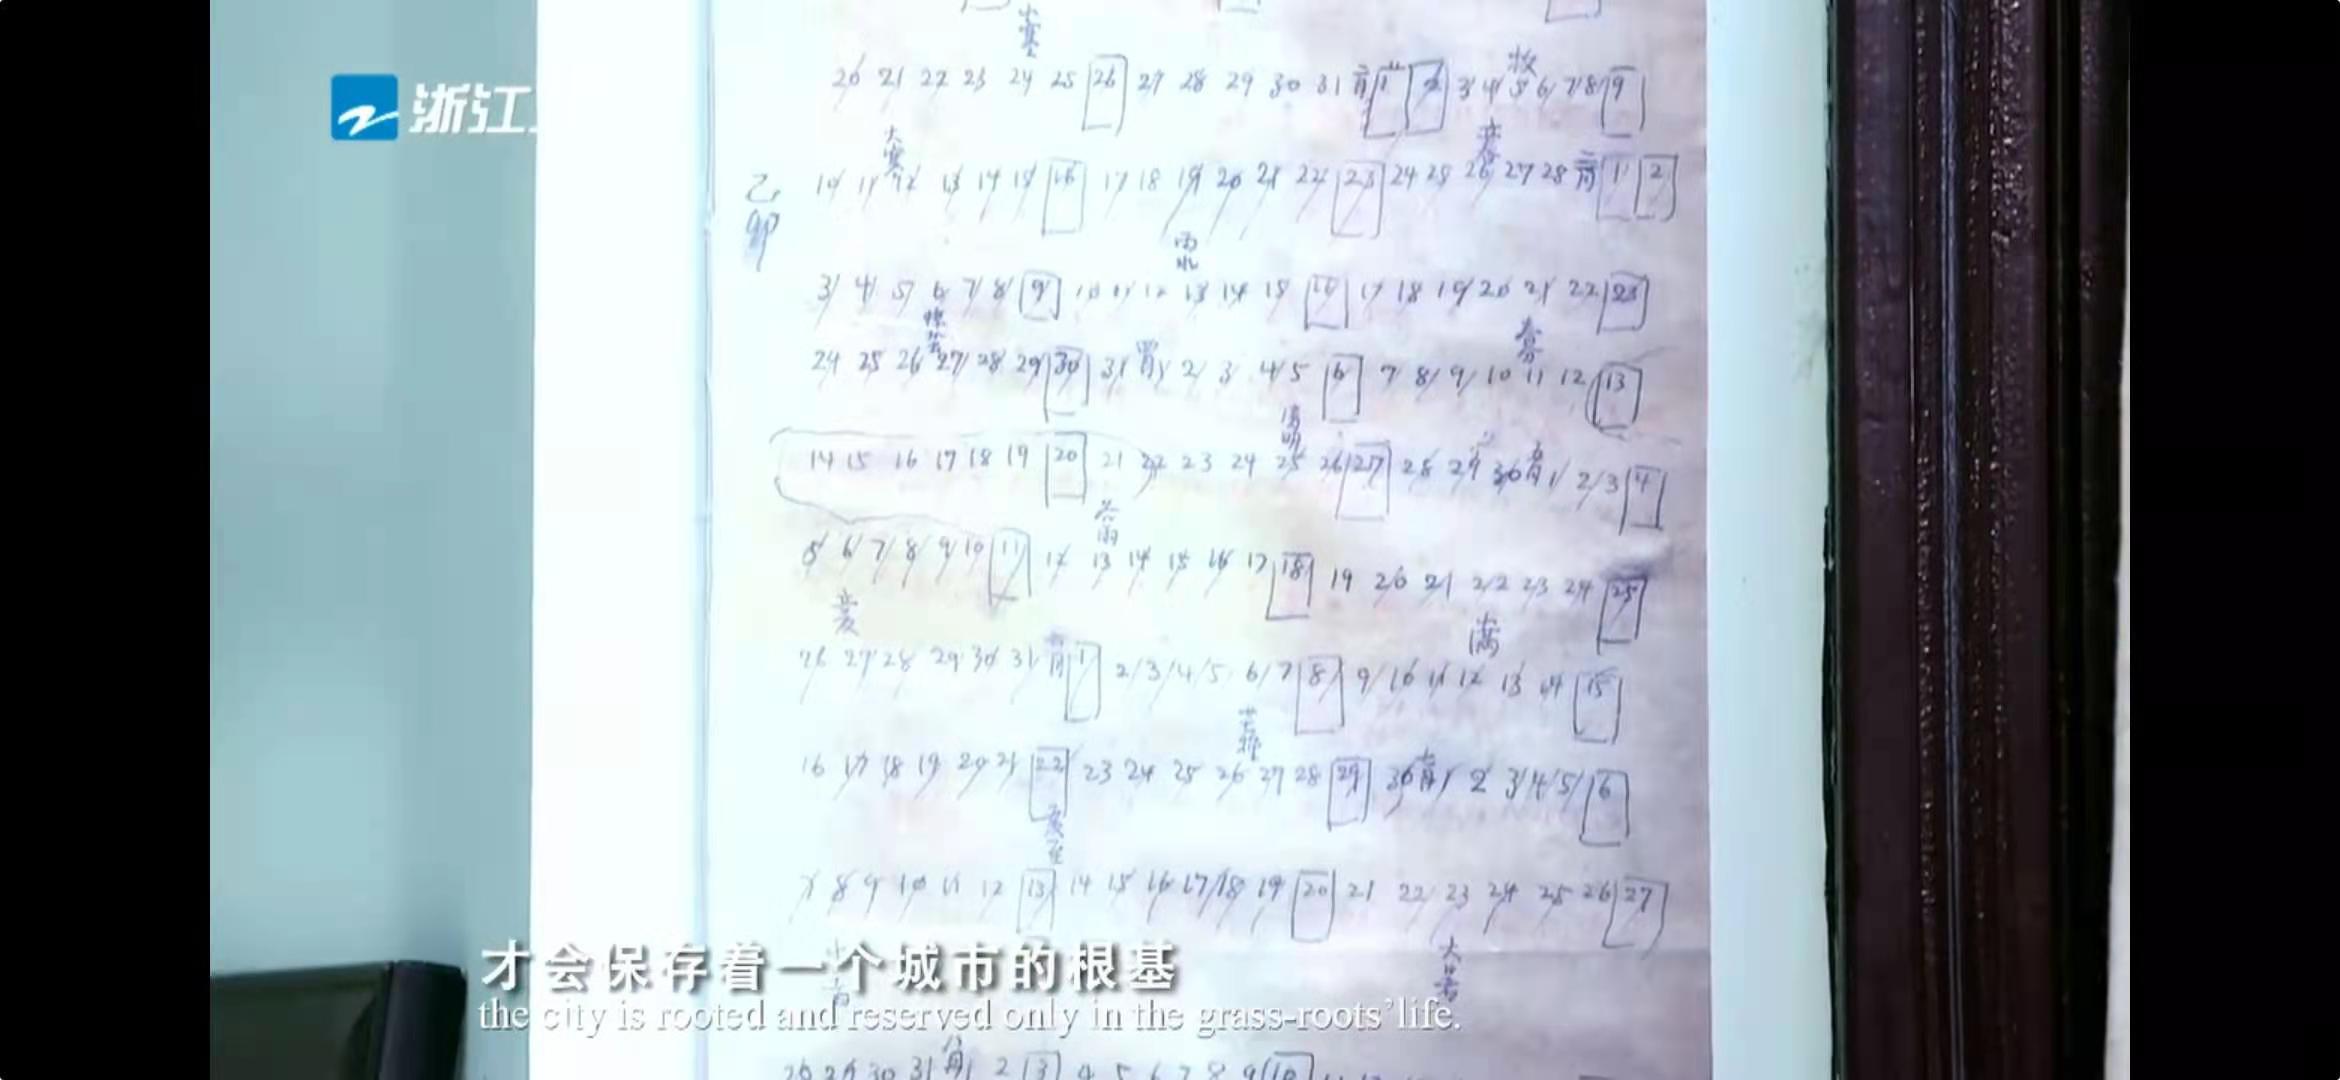 小寒
浙江
20 21 22 23 24 25 26 27 28 29 30 31 二月 1 2 3 4 5 6 7 8 9
大寒
立春
乙卯
10 11 12 13 14 15 16 17 18 19 20 21 22 23 24 25 26 27 28 三月 1 2
雨水
3 4 5 6 7 8 9 10 11 12 13 14 15 16 17 18 19 20 21 22 23
惊蛰
春分
24 25 26 27 28 29 30 31 四月 1 2 3 4 5 6 7 8 9 10 11 12 13
清明
14 15 16 17 18 19 20 21 22 23 24 25 26 27 28 29 30 五月 1 2 3 4
谷雨
5 6 7 8 9 10 11 12 13 14 15 16 17 18 19 20 21 22 23 24 25
立夏
小满
26 27 28 29 30 31 六月 1 2 3 4 5 6 7 8 9 10 11 12 13 14 15
芒种
16 17 18 19 20 21 22 23 24 25 26 27 28 29 30 七月 1 2 3 4 5 6
夏至
7 8 9 10 11 12 13 14 15 16 17 18 19 20 21 22 23 24 25 26 27
小暑
大暑
才会保存着一个城市的根基
the city is rooted and reserved only in the grass-roots' life.
28 29 30 31 八月 1 2 3 4 5 6 7 8 9 10